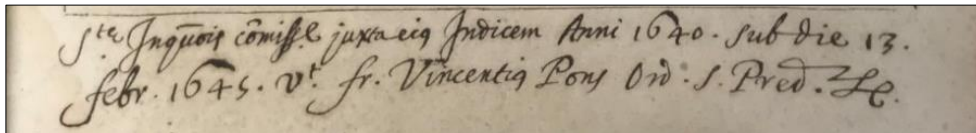 S.te Inquōis com̄iss.e juxta eiꝯ Indicem Anni 1640. sub die 13.
febr. 1645. v.t fr. Vincentiꝯ Pons Ord. S. Pred. &c.